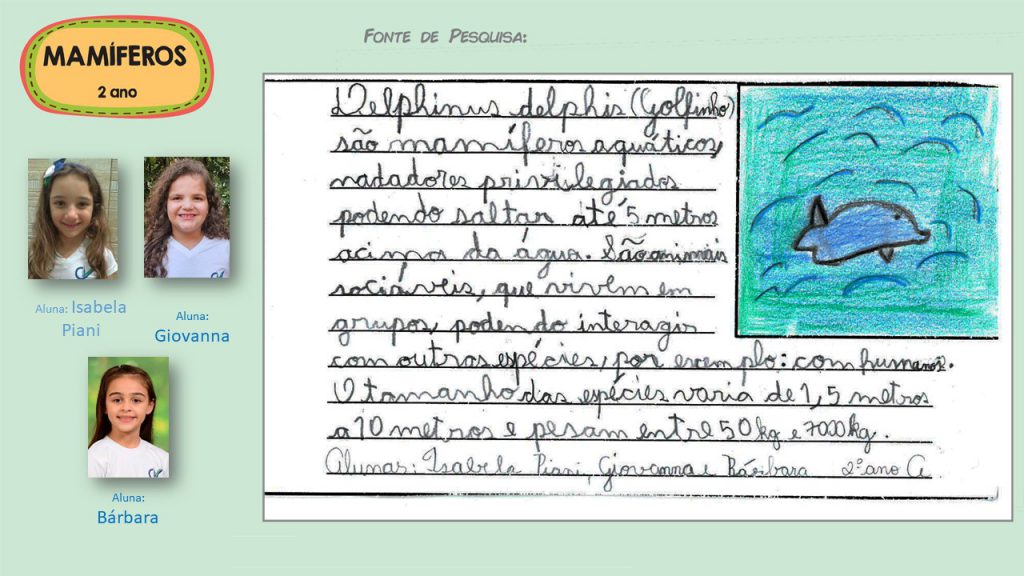 MAMÍFEROS
2 ano
FONTE DE PESQUISA:
Aluna: Isabela
Piani
Aluna:
Giovanna
Aluna:
Bárbara
Delphinus delphis (Golfinho)
são mamíferos aquáticos,
nadadores privilegiados
podendo saltar até 5 metros
acima da água. São animais
sociáveis, que vivem em
grupos, podendo interagir
com outras espécies, por exemplo: com humanos.
O tamanho das espécies varia de 1,5 metros
a 10 metros e pesam entre 50 kg e 7000 kg.
Alunas: Isabela Piani, Giovanna e Bárbara 2º ano A